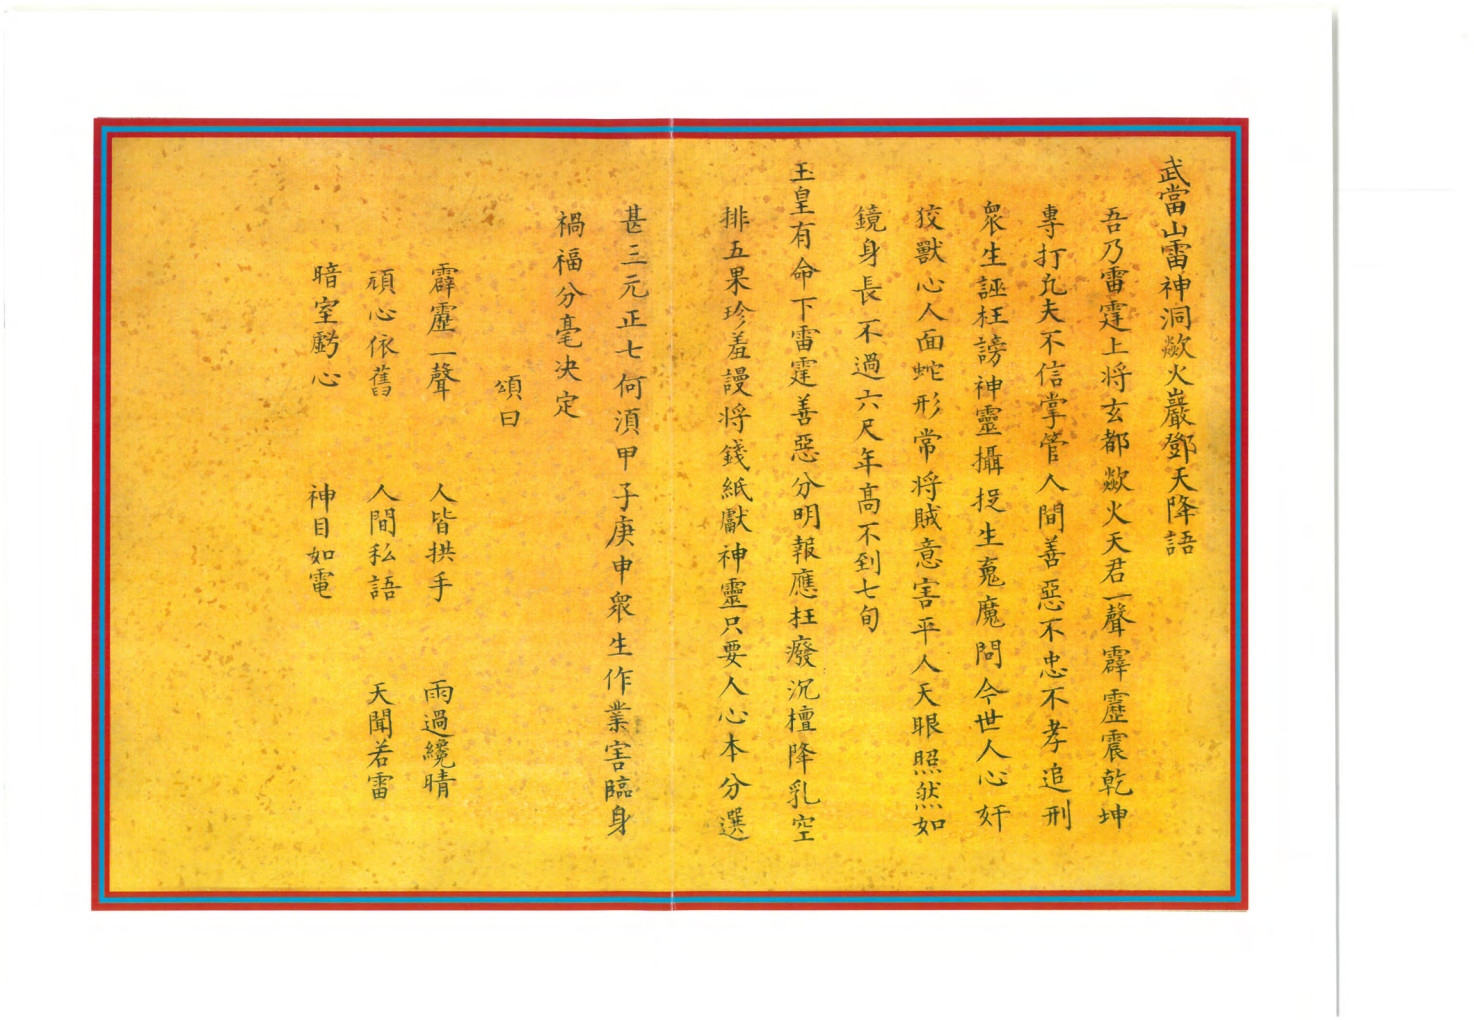 武當山雷神洞歘火巖鄧天降語
吾乃雷霆上将玄都歘火天君一聲霹靂震乾坤
專打凢夫不信掌管人間善惡不忠不孝追刑
衆生誣枉謗神靈攝捉生䰟魔問今世人心奸
狡獸心人面蛇形常将賊意害平人天眼照然如
鏡身長不過六尺年高不到七旬
玉皇有命下雷霆善惡分明報應枉癈沉檀降乳空
排五果珍羞謾将錢紙獻神靈只要人心本分選
甚三元正七何湏甲子庚申衆生作業害臨身
禍福分毫决定
頌曰
霹靂一聲 人皆拱手 雨過纔晴
頑心依舊 人間私語 天聞若雷
暗室虧心 神目如電